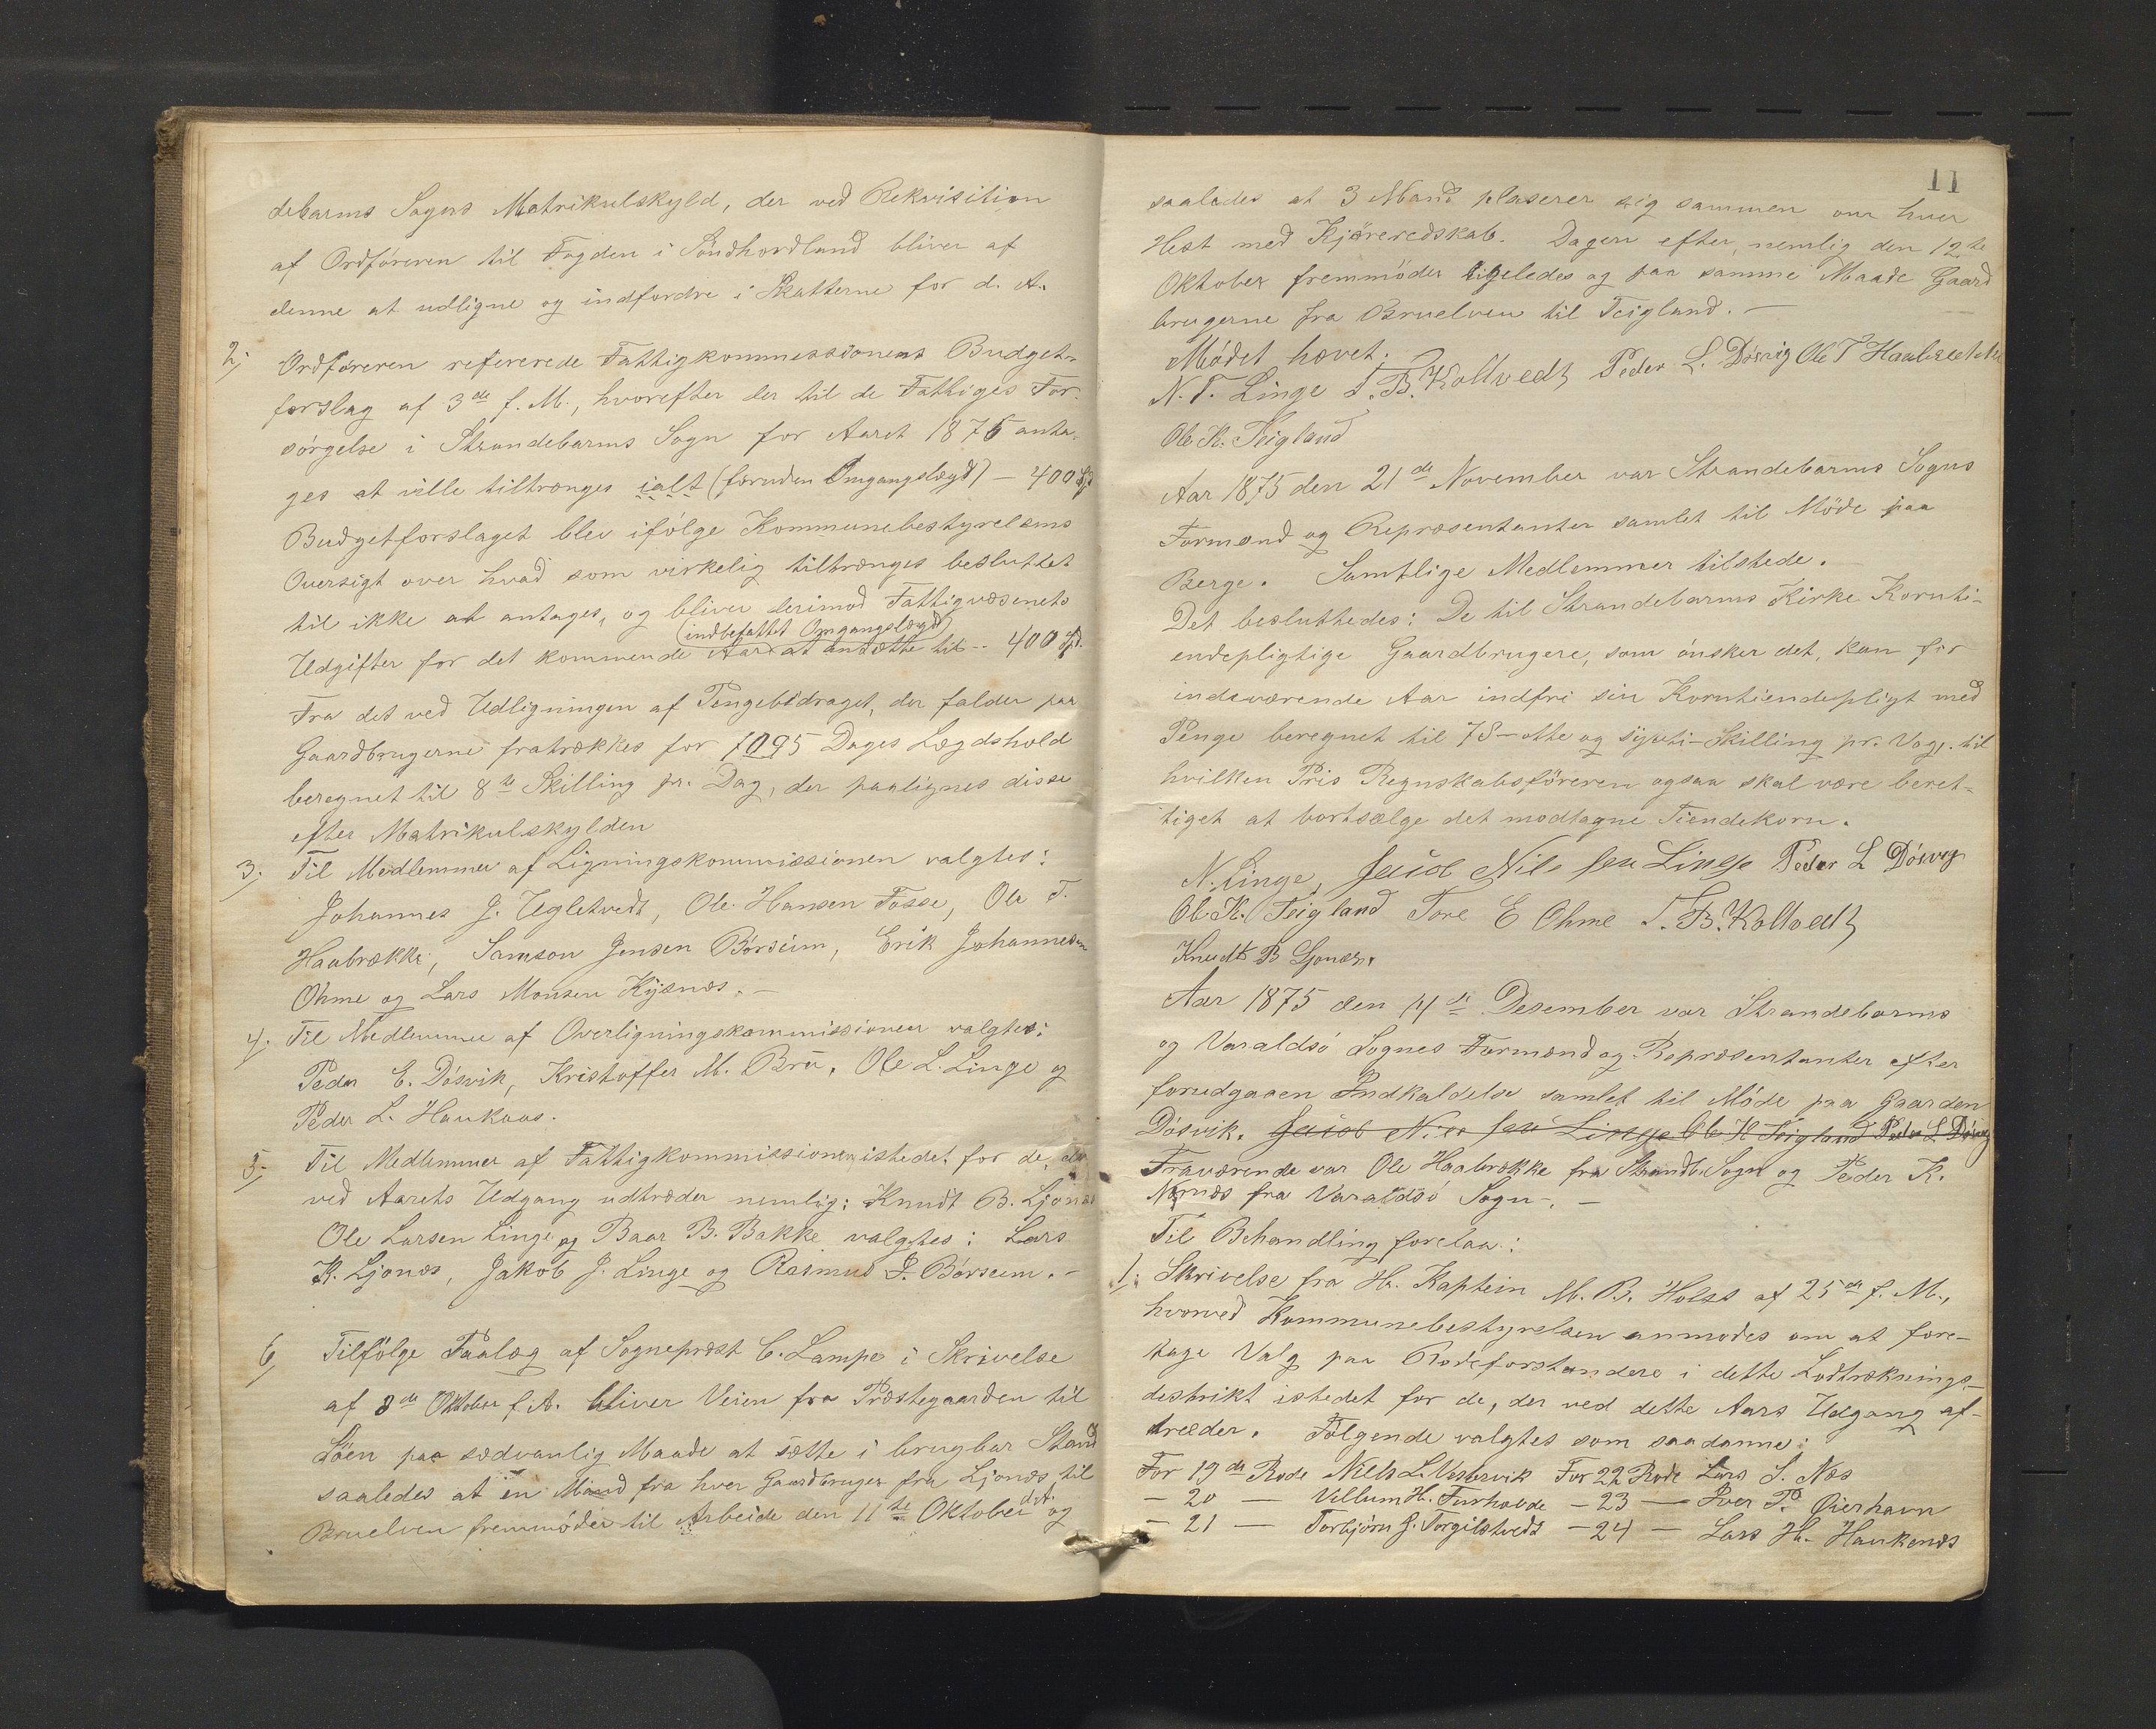 debarms Sogns Matrikulskyld, der ved Rekvisition
af Ordföreren til Fogden i Söndhordland bliver af
denne at udligne og indfordre i Skatterne for d. A.
2; Ordföreren refererede Fattigkommissionens Budget-
forslag af 3de f. M., hvorefter der til de Fattiges For-
sörgelse i Strandebarms Sogn for Aaret 1876 anta-
ges at ville tiltrænges ialt (foruden Omgangslægd) - 400 Spd
Budgetforslaget blev ifölge Kommunebestyrelsens
Oversigt over hvad som virkelig tiltrænges besluttet
til ikke at antages, og bliver derimod Fattigvæsenets
(indbefattet Omgangslægd)
Udgifter for det kommende Aar at ansætte til -- 400 Spd.
Fra det ved Udligningen af Pengebidraget, der falder paa
Gaardbrugerne fratrækkes for 1095 Dages Lægdshold
beregnet til 8te Skilling pr. Dag, der paalignes disse
efter Matrikulskylden
3; Til Medlemmer af Ligningskommissionen valgtes:
Johannes J. Ugletvedt, Ole Hansen Fosse, Ole T.
Haabrække, Samson Jensen Börseim, Erik Johannesen
Ohme og Lars Monsen Kysnæs. -
4; Til Medlemmer af Overligningskommissionen valgtes:
Peder E. Dösvik, Kristoffer M. Bru, Ole L. Linge og
Peder L. Haukaas.
5; Til Medlemmer af Fattigkommissionen istedet for de, der
ved Aarets Udgang udtræder nemlig: Knudt B. Ljonæs
Ole Larsen Linge og Baar B. Bakke valgtes: Lars
K. Ljonæs, Jakob J. Linge og Rasmus J. Börseim. -
6, Tilfölge Paalæg af Sogneprest C. Lampe i Skrivelse
af 8de Oktober f. A. bliver Veien fra Præstegaarden til
Söen paa sædvanlig Maade at sætte i brugbar Stand
saaledes at en Mand fra hver Gaardbruger fra Ljonæs til
Bruelven fremmöder til Arbeide den 11te Oktober d. A. og
11
saaledes at 3 Mand plaserer sig sammen om hver
Hest med Kjöreredskab. Dagen efter, nemlig den 12te
Oktober fremmöder ligeledes og paa samme Maade Gaard
brugerne fra Bruelven til Teigland. -
Mödet hævet.
N. T. Linge T. B. Kollvedt Peder L. Dösvig Ole T Haabrække
Ole K. Teigland
Aar 1875 den 21de November var Strandebarms Sogns
Formænd og Repræsentanter samlet til Möde paa
Berge. Samtlige Medlemmer tilstede.
Det besluttedes: De til Strandebarms Kirke Kornti-
endepligtige Gaardbrugere, som önsker det, kan for
indeværende Aar indfri sin Korntiendepligt med
Penge beregnet til 78 - otte og sytti - Skilling pr. Vog, til
hvilken Pris Regnskabsföreren ogsaa skal være beret-
tiget at bortsælge det modtagne Tiendekorn.
N. Linge, Jacob Nils sen Linge Peder L Dösvig
Ole K. Teigland Tore E Ohme T. B. Kollvedt
Knudt B Ljonæs.
Aar 1875 den 14de Desember var Strandebarms
og Varaldsö Sognes Formænd og Repræsentanter efter
forudgaaen Indkaldelse samlet til Möde paa Gaarden
Dösvik. Jacob Nils sen Linge Ole K Teigland Peder L Dösvig
Fraværende var Ole Haabrække fra Strandb. Sogn og Peder K.
Nernæs fra Varaldsö Sogn. -
Til Behandling forelaa:
1; Skrivelse fra Hr. Kaptein M. B. Holst af 25de f. M.,
hvorved Kommunebestyrelsen anmodes om at fore-
tage Valg paa Rodeforstandere i dette Lodtræknings-
destrikt istedet for de, der ved dette Aars Udgang af-
træder. Fölgende valgtes som saadanne:
For 19de Rode Niels L. Vestervik For 22 Rode Lars S. Næs
- 20 - Villum H. Furhovde - 23 - Iver P. Øierhavn
- 21 - Torbjörn G. Torgilstvedt - 24 - Lars H. Haukenæs